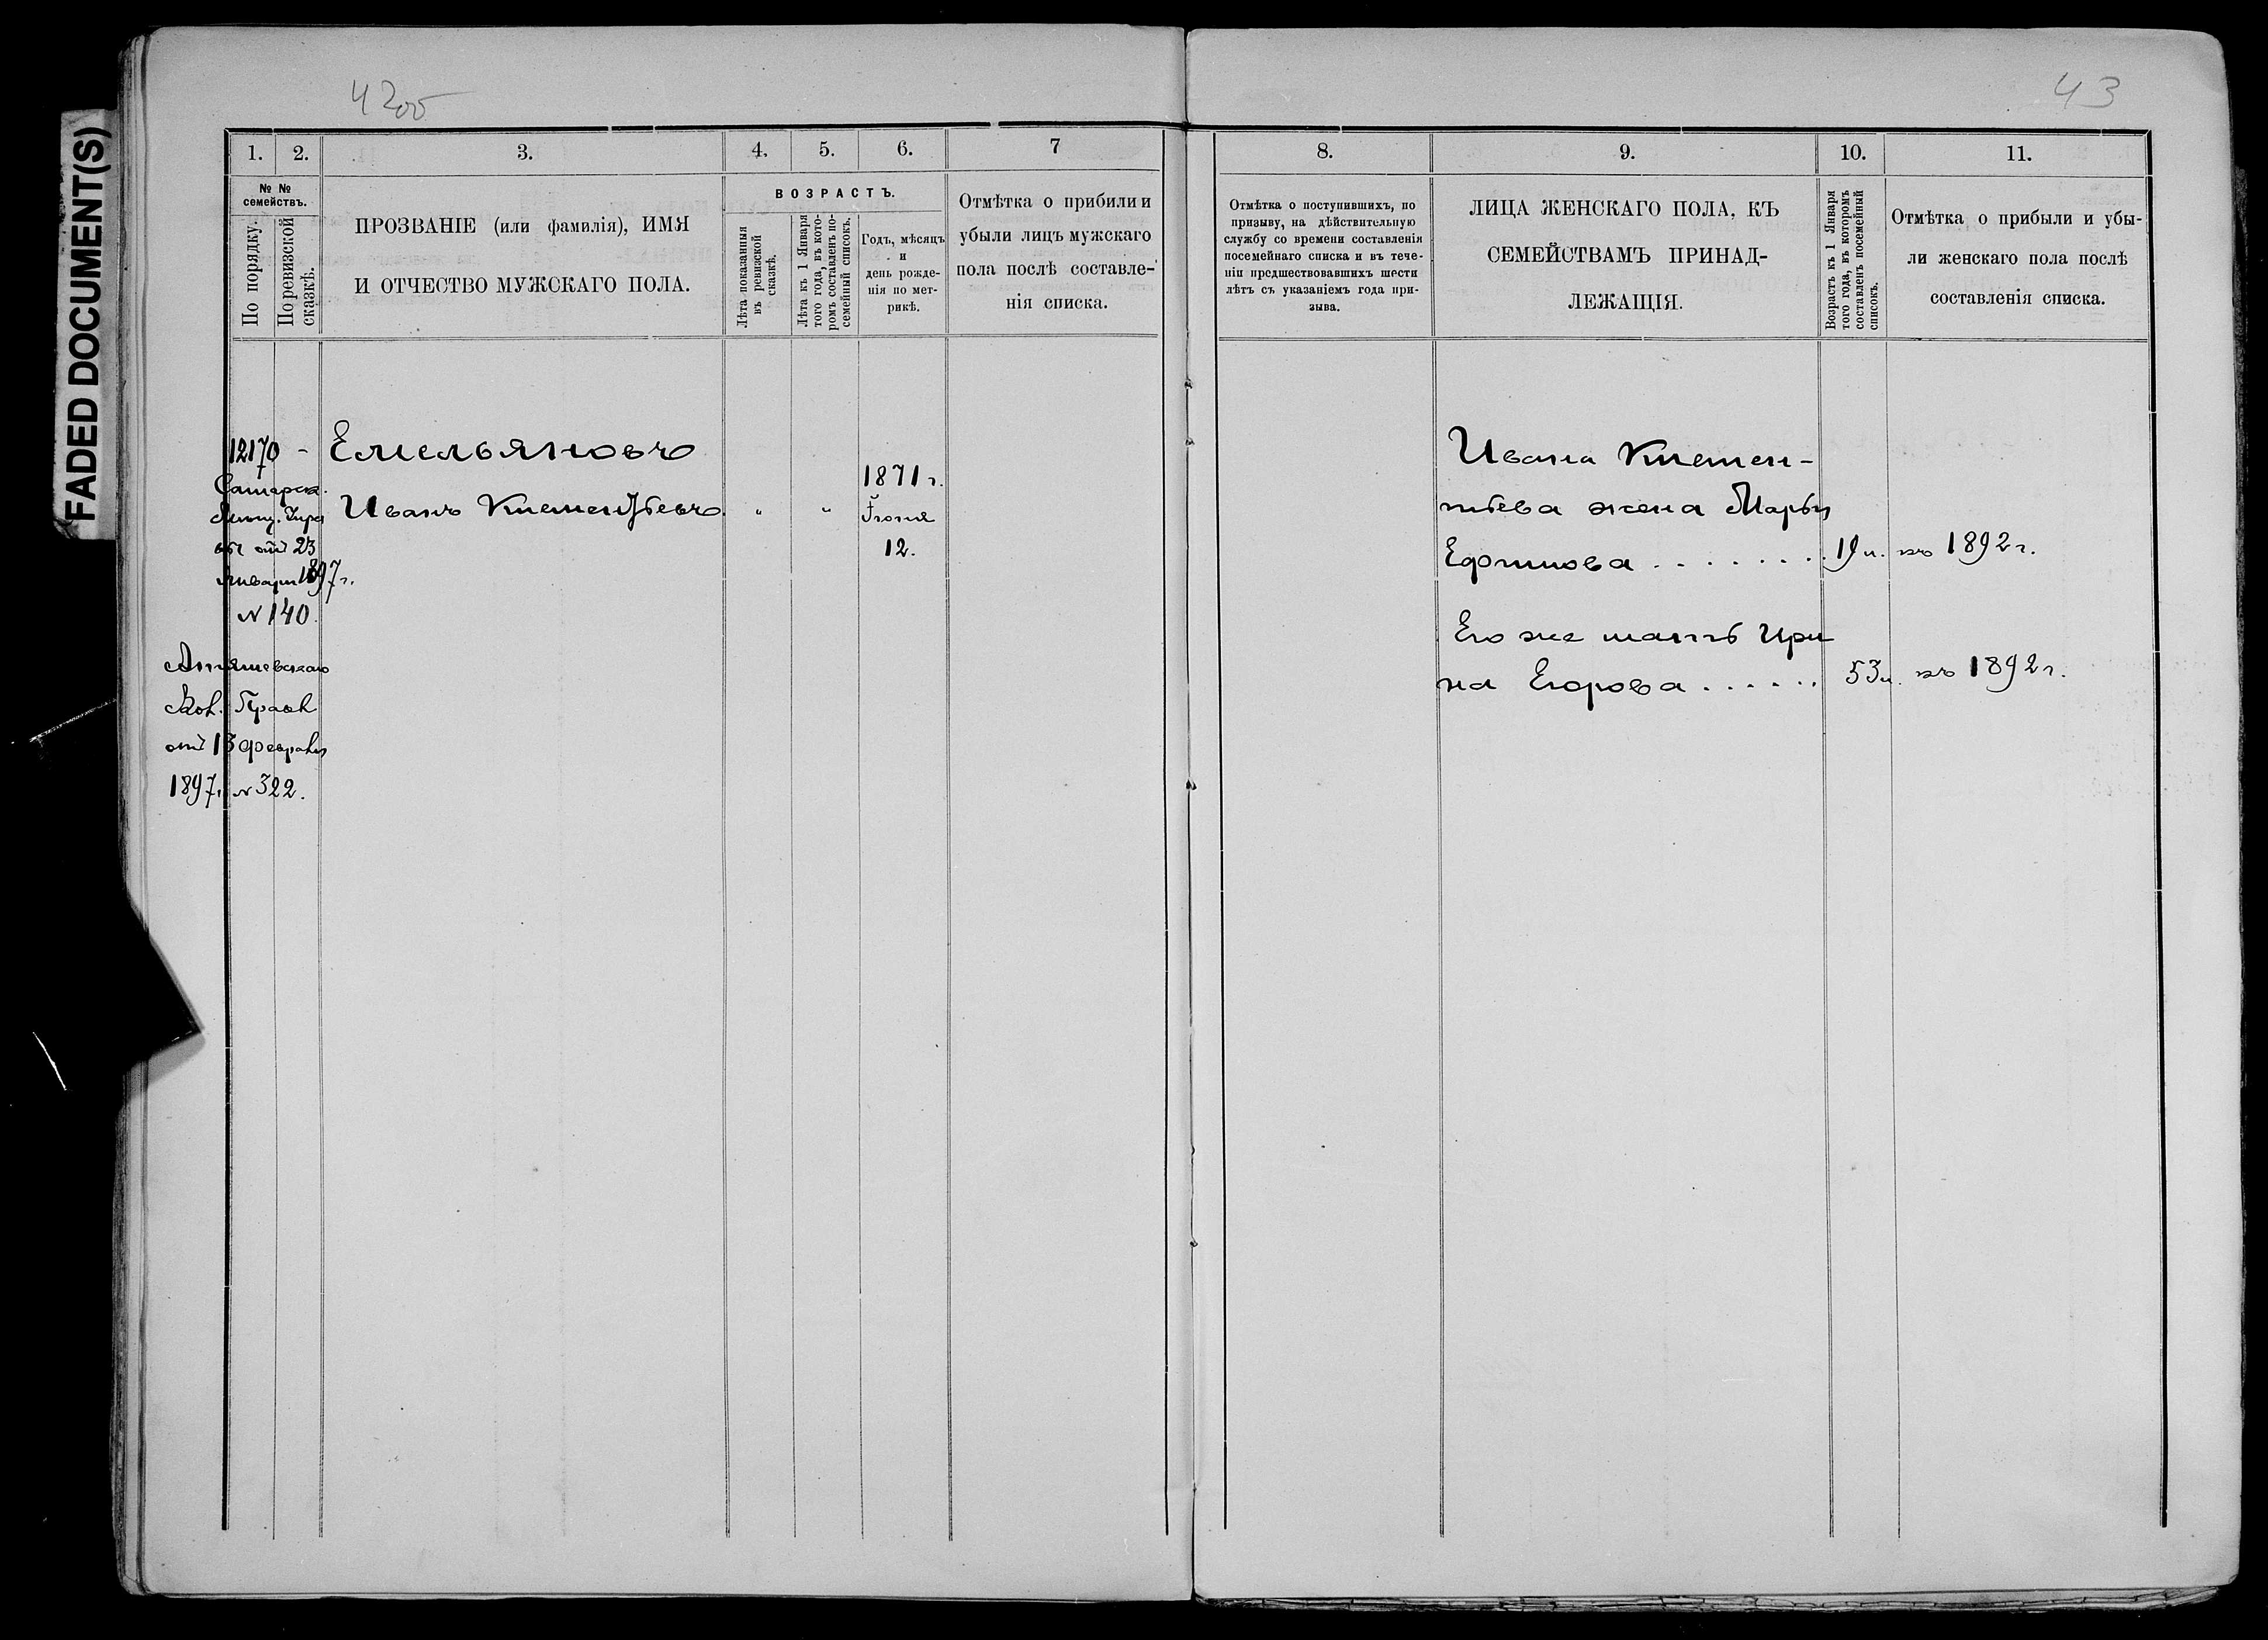 FADED DOCUMENT(S)
42об
43
1.
2.
3.
4.
5.
6.
7
№ №
семействъ.
По порядку.
По ревизской
сказкѣ.
ПРОЗВАНІЕ (или фамилія), ИМЯ
И ОТЧЕСТВО МУЖСКАГО ПОЛА.
ВОЗРАСТЪ.
Лѣта показанныя
въ ревизской
сказкѣ.
Лѣта къ 1 Января
того года, въ кото-
ромъ составленъ по-
семейный списокъ.
Годъ, мѣсяцъ
и
день рожде-
нія по мет-
рикѣ.
Отмѣтка о прибили и
убыли лицъ мужскаго
пола послѣ составле-
нія списка.
12170 -
Самарск.
от 23
Января 1897 г.
N 140
Кол.
от 13 февраля
1897 г. N 322.
Емельяновъ
Иванъ Климентьевъ
" "
1871 г.
Іюня
12.
8.
9.
10.
11.
Отмѣтка о поступившихъ, по
призыву, на дѣйствительную
службу со времени составленія
посемейнаго списка и въ тече-
ніи предшествовавшихъ шести
лѣтъ съ указаніемъ года при-
зыва.
ЛИЦА ЖЕНСКАГО ПОЛА, КЪ
СЕМЕЙСТВАМЪ ПРИНАД-
ЛЕЖАЩІЯ.
Возрастъ къ 1 Января
того года, въ которомъ
составленъ посемейный
списокъ.
Отмѣтка о прибыли и убы-
ли женскаго пола послѣ
составленія списка.
Ивана Климен-
тьева жена Марья
Ефимова . . . . . . . . 19 л. къ 1892 г.
Его же мать Ири
на Егорова . . . . . . 53 л. къ 1892 г.